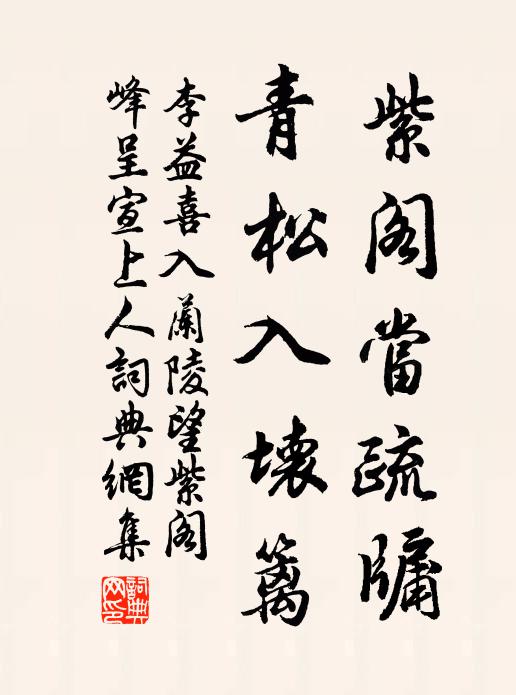 紫阁當疏牖
青松入壞篱
李益喜入蘭陵望紫阁
峰呈宣上人詞典網集
詞典网印